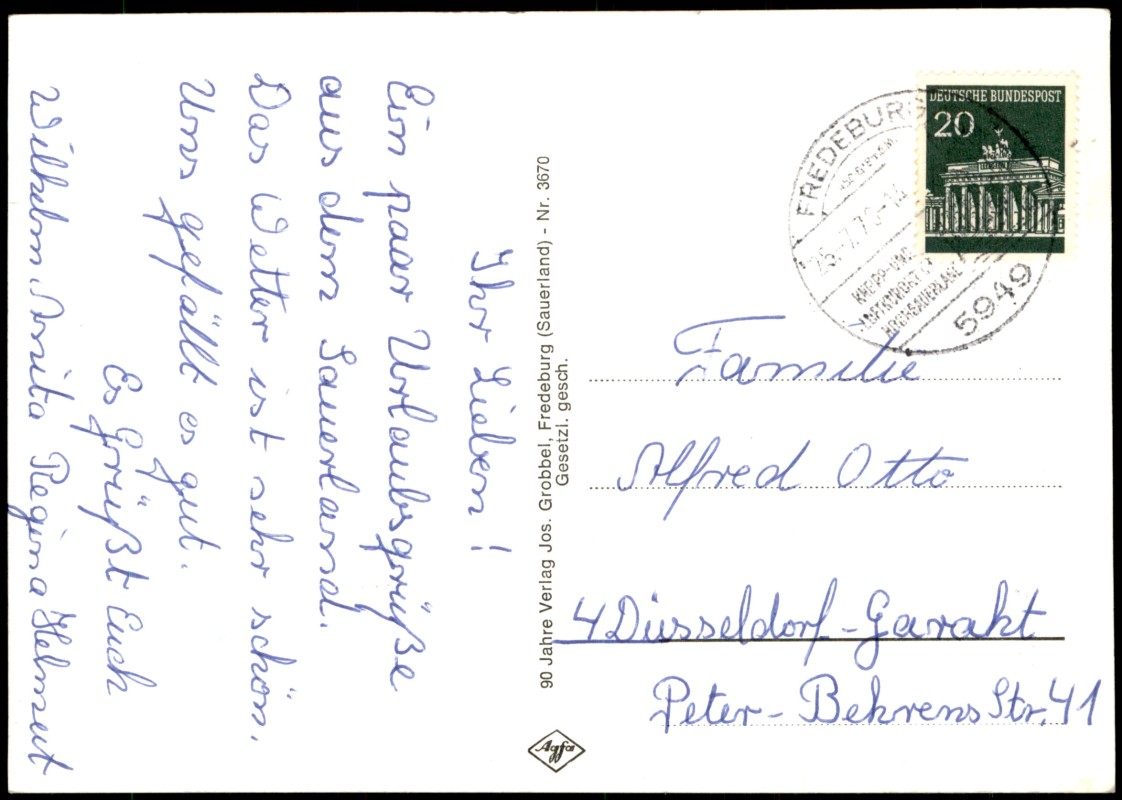 Ihr Lieben!
Ein paar Urlaubsgrüße
aus dem Sauerland.
Das Wetter ist sehr schön.
Uns gefällt es gut.
Es Grüßt Euch
Wilhelm, Anita Regina Helmut
90 Jahre Verlag Jos. Grobbel, Fredeburg (Sauerland) - Nr. 3670
Gesetzl. gesch.
Agfa
DEUTSCHE BUNDESPOST
20
FREDEBURG
KNEIPP-UND
LUFTKURORT
HOCHSAUERLAND
5949
Familie
Alfred Otto
4 Düsseldorf-Garakt
Peter-Behrens Str. 41